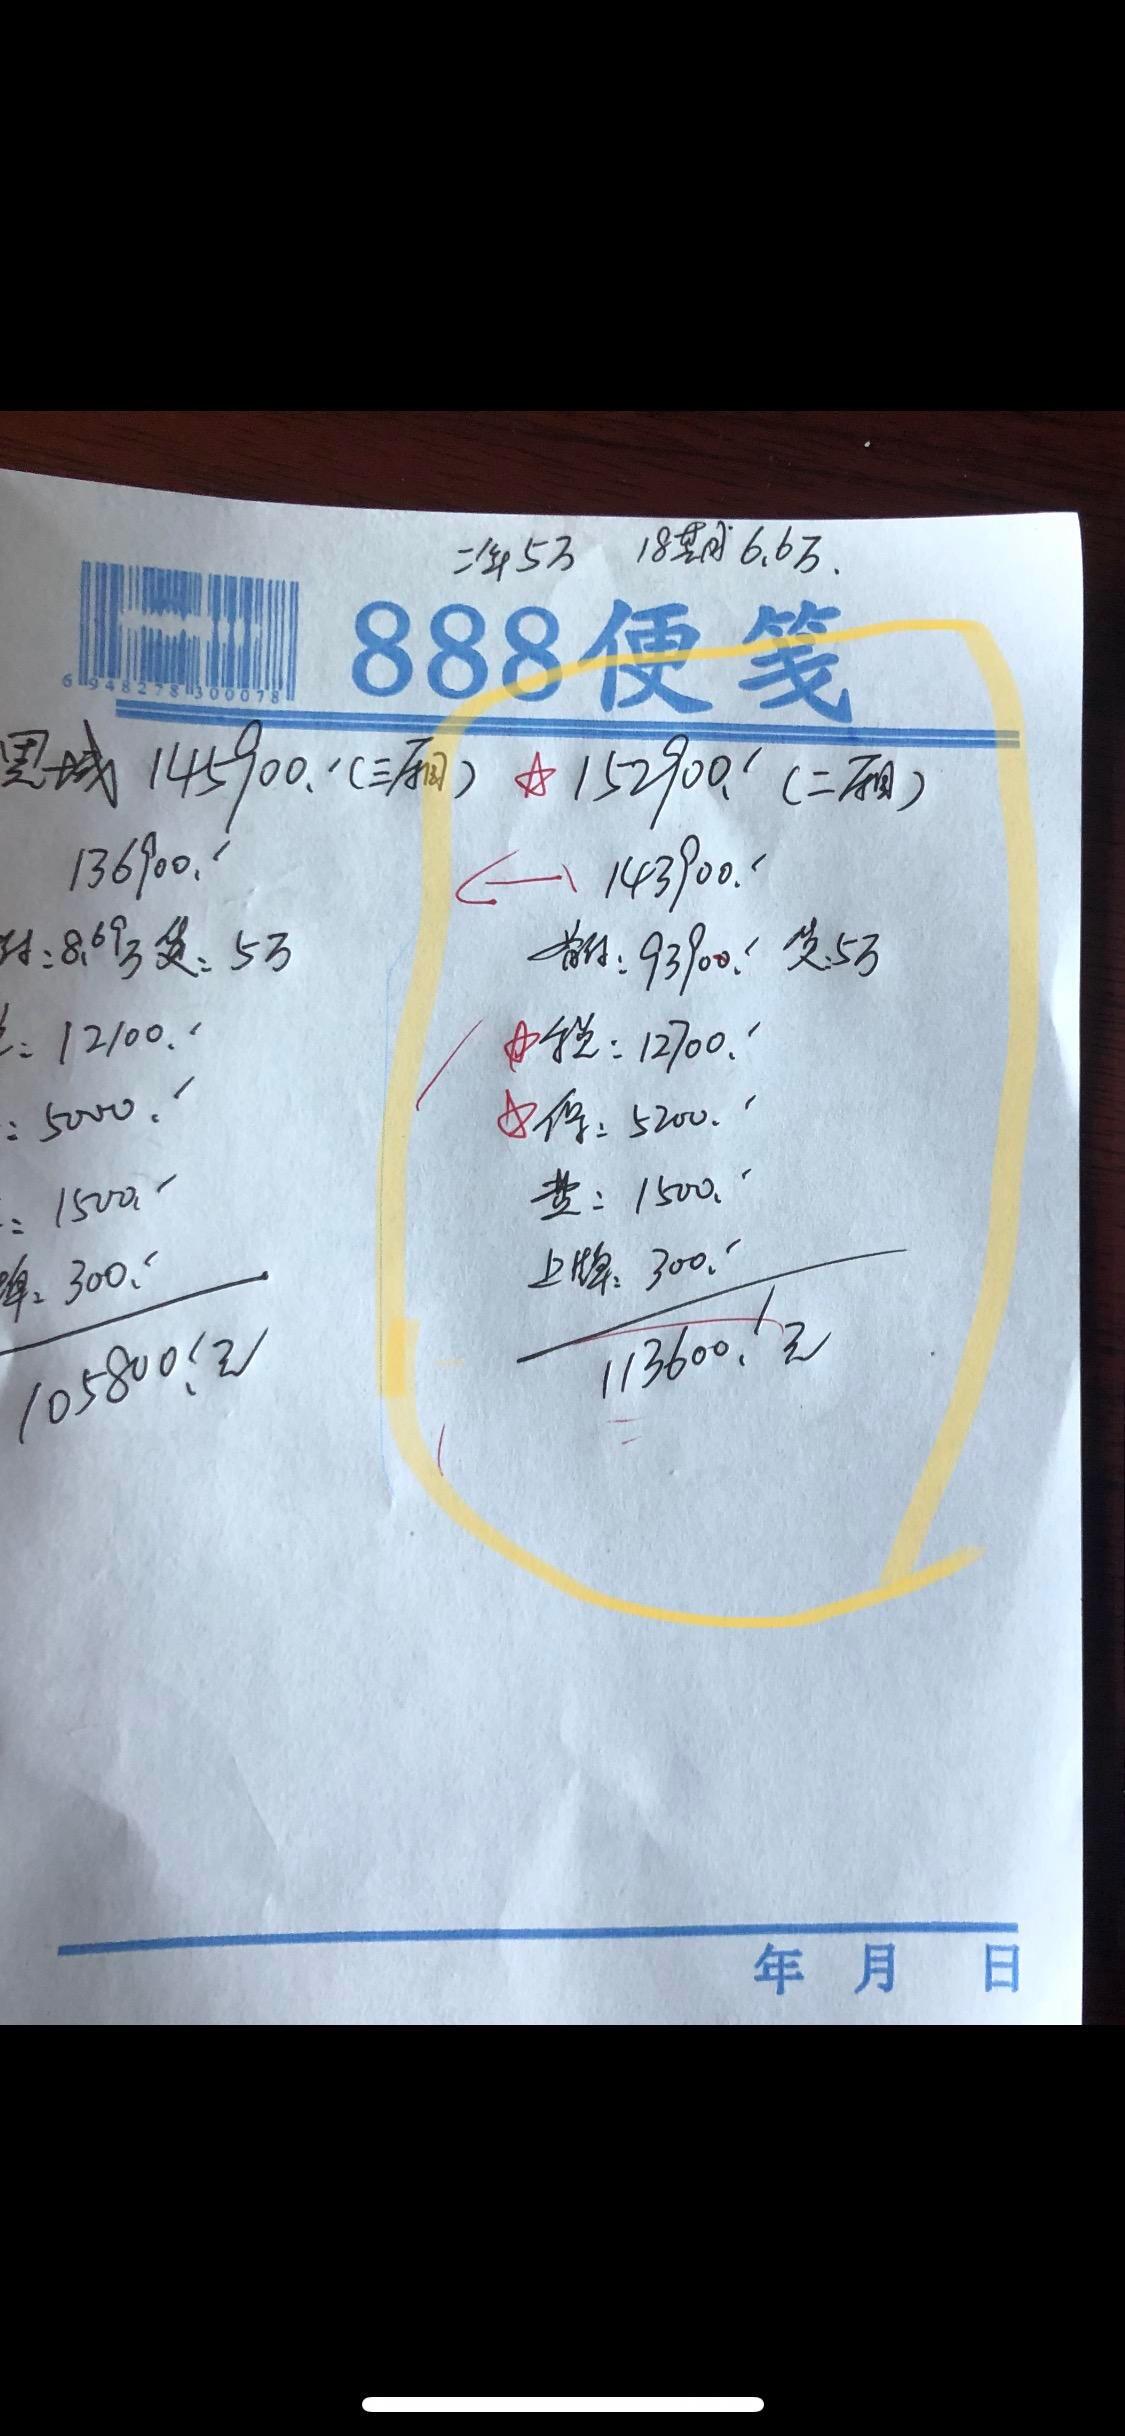 二年5万 18期 6.6万.
6 948278 300078
888便笺
思域 145900.(三厢) ☆ 152900.(二厢)
136900. ← 143900.
付:8.69万 贷:5万 首付:93900. 贷:5万
税:12100. ☆税:12700.
:5000. ☆保:5200.
:1500. 费:1500.
牌:300. 上牌:300.
105800.元 113600.元
年 月 日